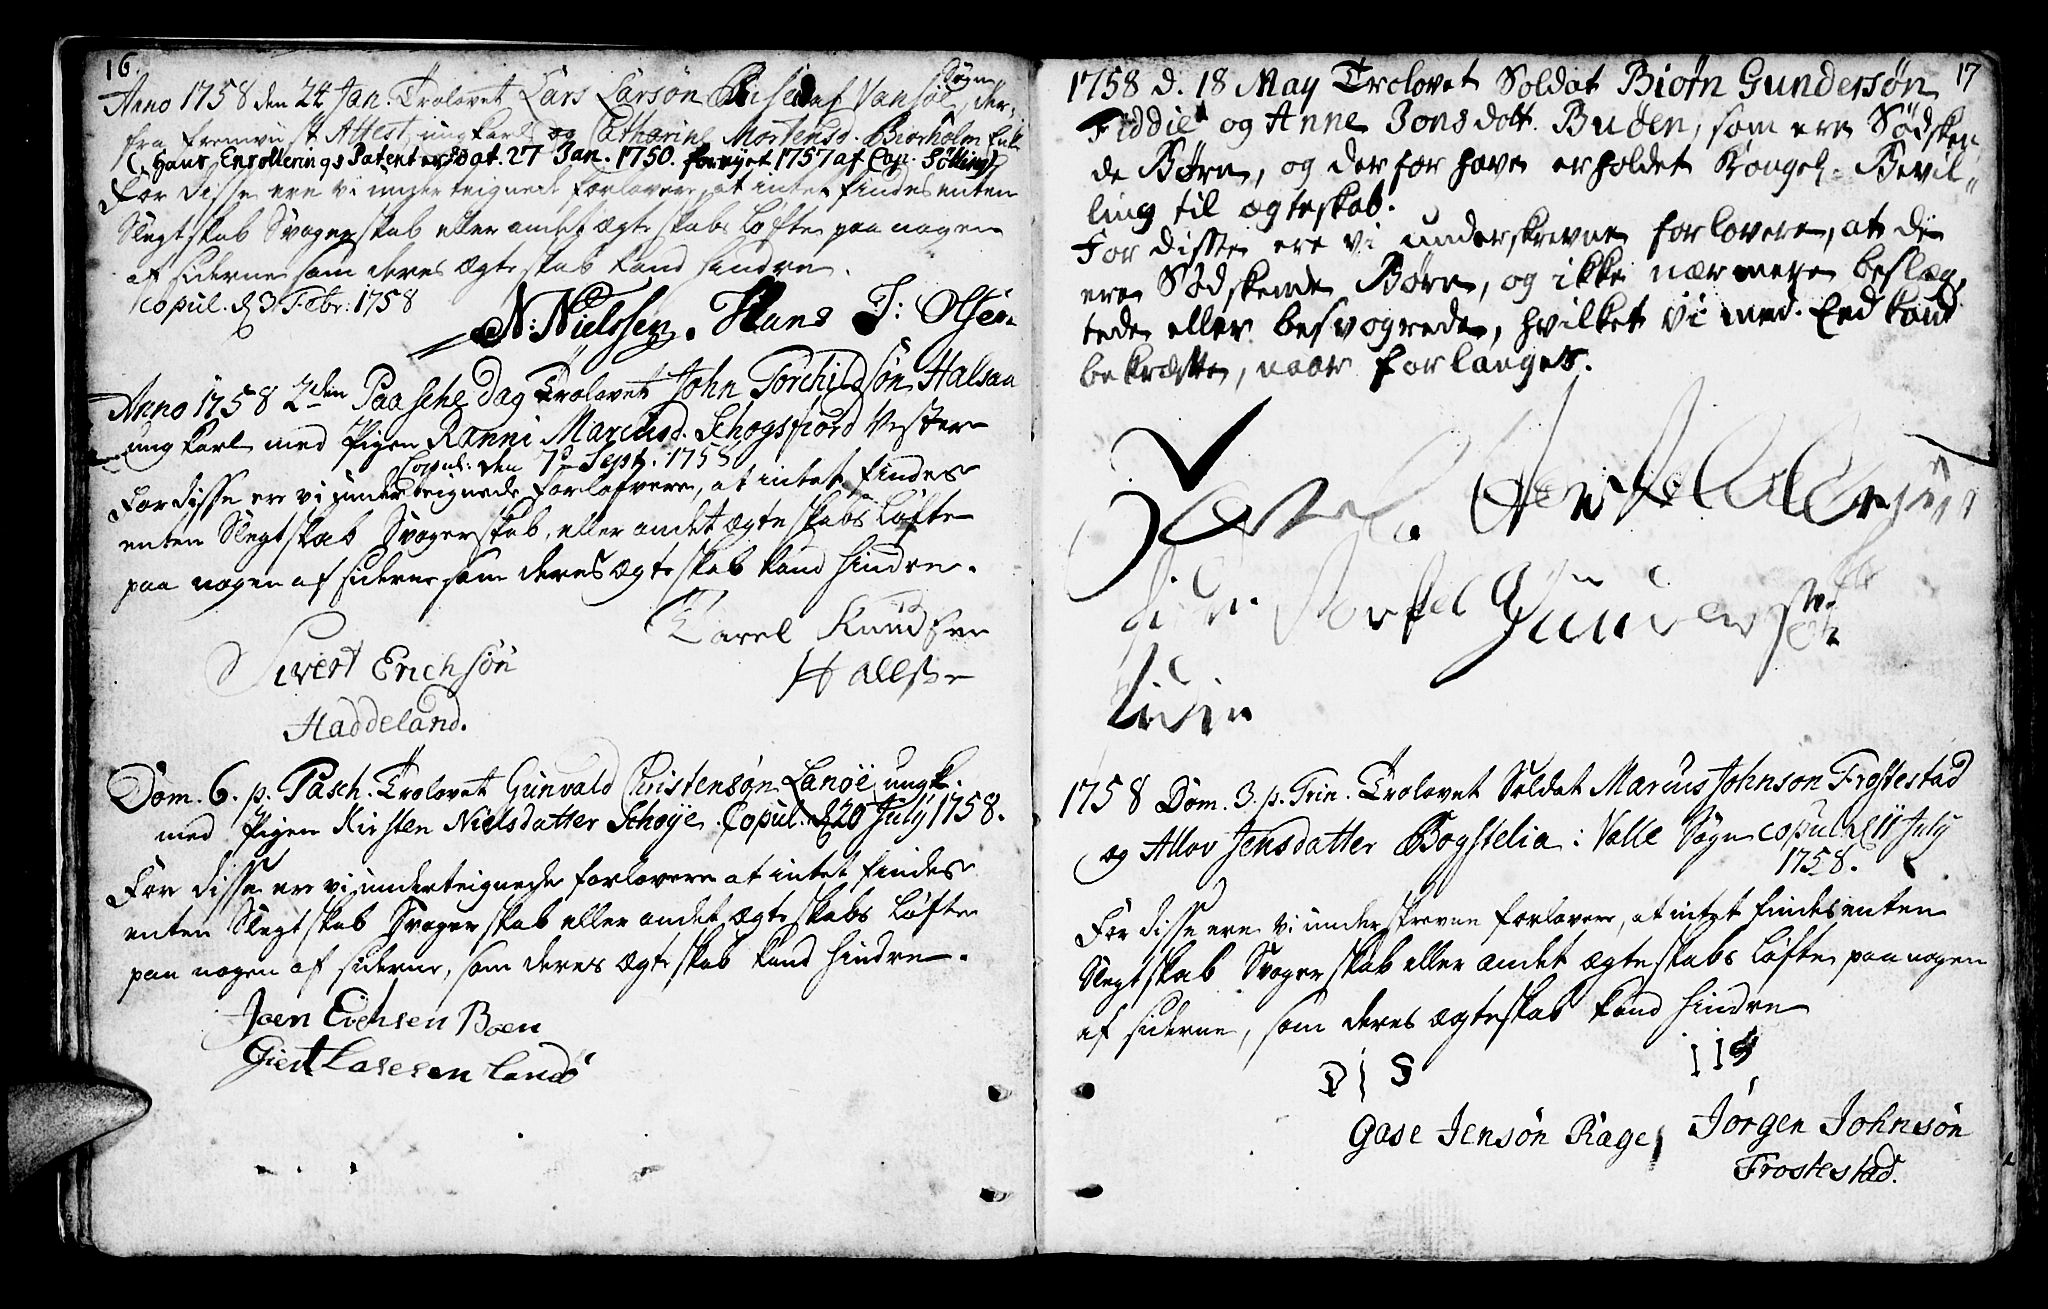 16.
Anno 1758 den 24 Jan. Trolovet Lars Larsøn af Vansøe Sogn, der,,
fra fremviist Attest, ungkarl og Catharine Mortensd. Biørholm Enk
(: Hans Enrollerings Patent er dat. 27 Jan. 1750. fornyet 1757 af Cap. Sølling)
For disse ere vi underteignede forlovere, at intet findes enten
Slegtskab Svogerskab eller andet ægteskabs løfte paa nogen
af siderne som deres ægteskab kand hindre.
copul. d 3 Febr. 1758
N: Nielssen. Hans J: Olsen
Anno 1758 2den Paaschedag Trolovet John Torchildsøn Halsaa
ungkarl med Pigen Ranni Marcusd. Schogsfiord Vester
Copul: den 7de Sept. 1758
For disse ere vi underteignede forlofvere, at intet findes
enten Slegtskab Svogerskab, eller andet ægteskabs løfte
paa nogen af siderne som deres ægteskab kand hindre.
Karel Knudsen
Sivert Erichsøn
Haddeland.
Dom. 6. p. Pasch. Trolovet Gunvald Christensøn Lanøe ungk.
med Pigen Kirsten Nielsdatter Schøye. Copul. d 20 July 1758.
For disse ere vi underteignede forlovere at intet findes
enten Slegtskab Svogerskab eller andet ægteskabs løfte
paa nogen af siderne, som deres ægteskab kand hindre.
Joen Evensen Boen
Giert Lassesen Landö
17
1758 d. 18 May Trolovet Soldat Biørn Gundersøn
Fiddie og Anne Jonsdatt. Buøen, som ere Sødsken,,
de Børn, og derfor have erholdet Kongel. Bevil,,
ling til ægteskab.
For disse ere vi underskrevne forlovere, at de
ere Sødskende Børn, og ikke nærmere beslæg,,
tede eller besvogrede, hvilket vi med Eed kand
bekræfte, naar forlanges.
1758 Dom. 3. p. Trin. Trolovet Soldat Marcus Johnson Frostestad
og Allov Jensdatter Bogstelia i Valle Sogn copul. d 11 July
1758.
For disse ere vi underskrevne forlovere, at intet findes enten
Slegtskab Svogerskab eller andet ægteskabs løfte paa nogen
af siderne, som deres ægteskab kand hindre
Gase Jensøn Rage Jørgen Johnsøn
Frostestad.